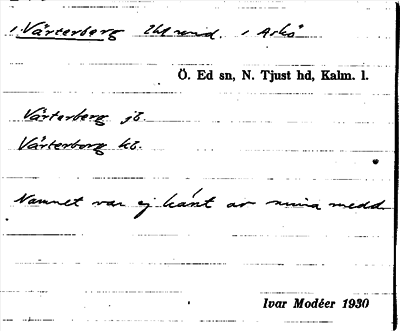 Vårterberg
Ö. Ed sn, N. Tjust hd, Kalm. l.
Vårterberg jb.
Vårterborg kb.
Namnet var ej känt av mina medd.
Ivar Modéer 1930